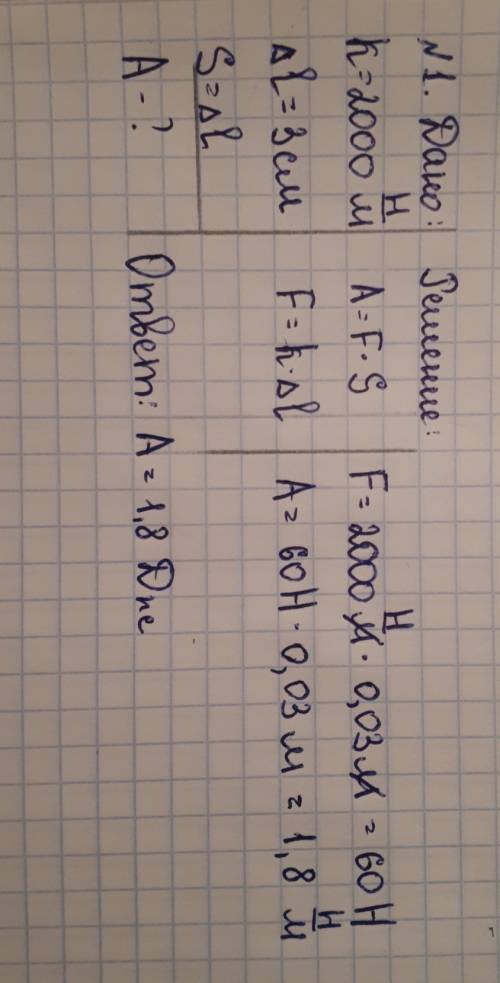 №1. Дано:
k = 2000 Н/м
Δl = 3 см
S = Δl
A - ?
Решение:
A = F · S
F = k · Δl
F = 2000 Н/м · 0,03 м = 60 Н
A = 60 Н · 0,03 м = 1,8 Н/м
Ответ: A = 1,8 Дж